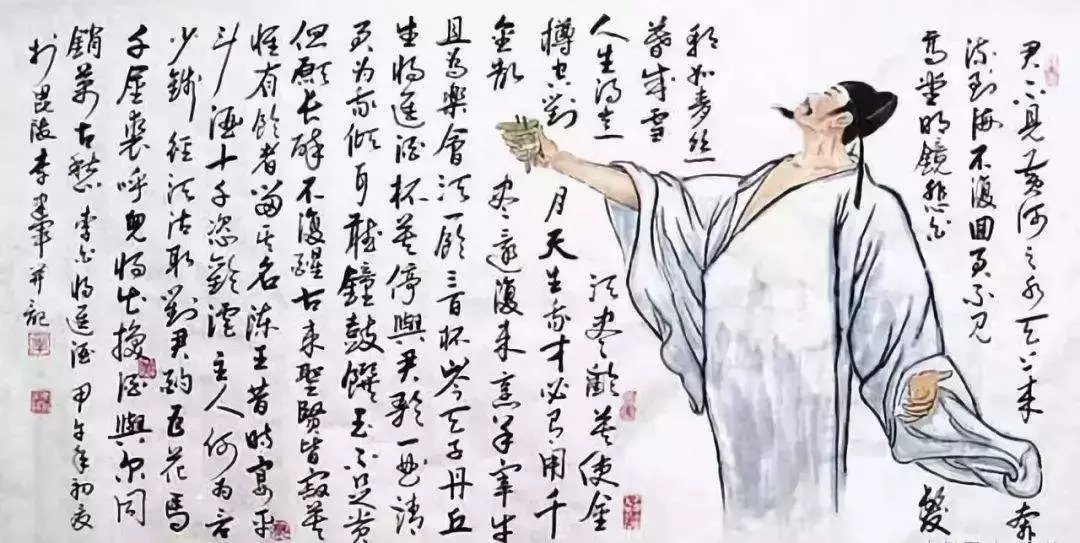 君不見黃河之水天上来奔
流到海不復回君不见
高堂明鏡悲白髮
朝如青丝
暮成雪
人生得意須盡歡莫使金
樽空對月天生我才必有用千
金散盡還復来烹羊宰牛
且為樂會須一飲三百杯岑夫子丹丘
生將進酒杯莫停與君歌一曲請
君为我傾耳聽鐘鼓饌玉不足貴
但願長醉不復醒古来聖賢皆寂莫
惟有飲者留其名陈王昔時宴平
斗酒十千恣歡謔主人何为言
少錢径須沽取對君酌五花馬
千金裘呼兒將出換酒與尔同
銷萬古愁李白將進酒甲午年初夏
於毘陵李軍并記